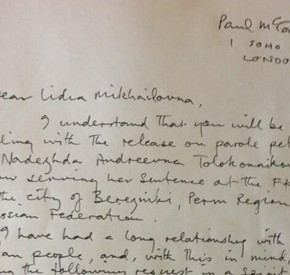 Paul McCa
1 SOHO
LONDO
ear Lidia Mikhailovna,
I understand that you will be
ling with the release on parole pet
Nadeshda Andreevna Tolokonnikov
ow serving her sentence at the FK
the city of Berezniki, Perm Region
ssian Federation.
I have had a long relationship with
an people, and, with this in mind,
ng the following request in a spirit